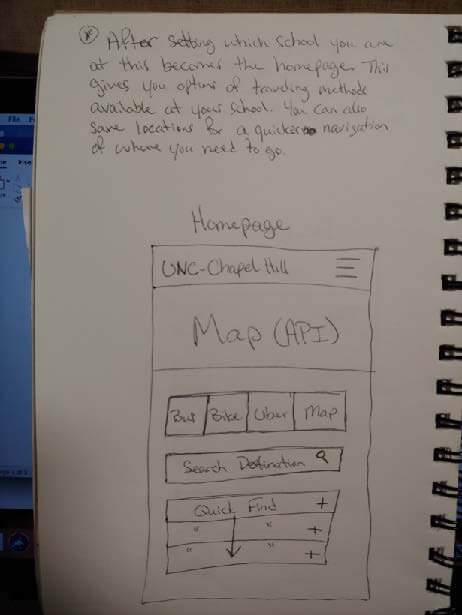 * After setting which school you are
at this becomes the homepage. This
gives you options of traveling methods
available at your school. You can also
save locations for a quicker navigation
of where you need to go.
Homepage
UNC-Chapel Hill
Map (API)
Bus Bike Uber Map
Search Destination
Quick Find +
" " +
" " +